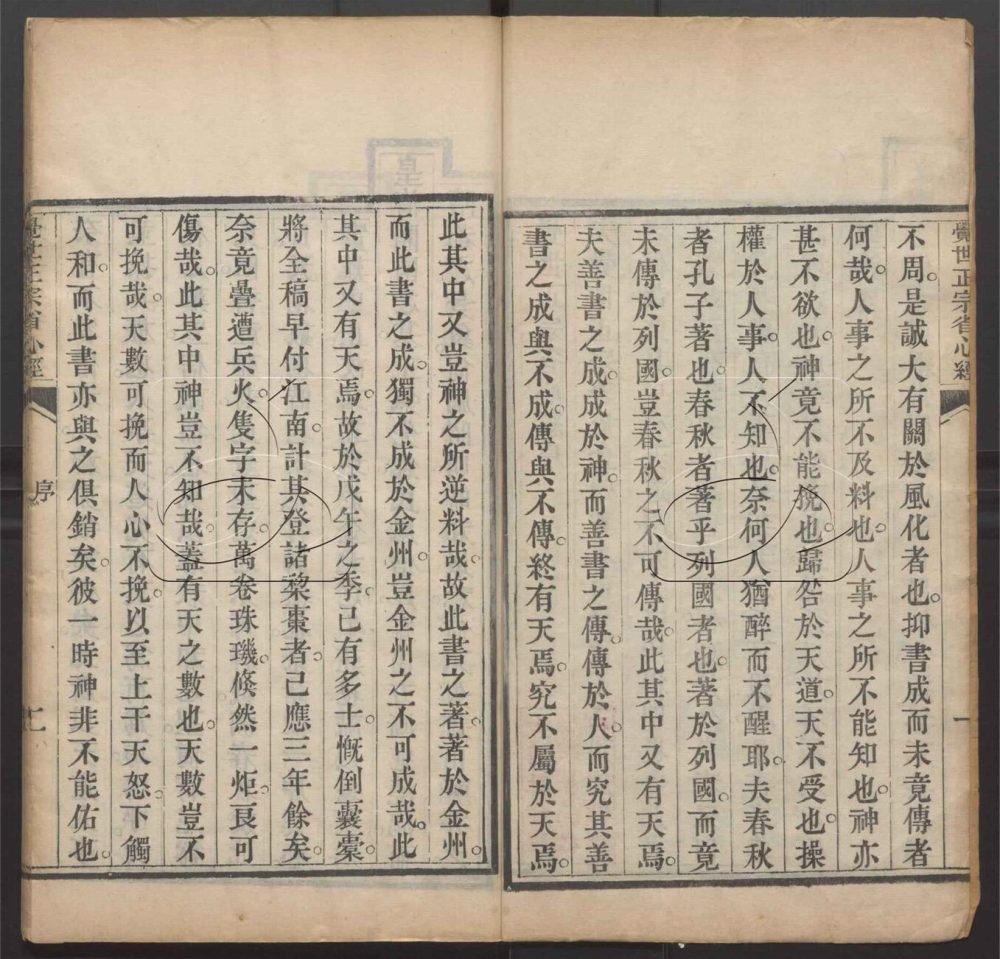 覺世正宗省心經
一
不周。是誠大有關於風化者也。抑書成而未竟傳者
何哉。人事之所不及料也。人事之所不能知也。神亦
甚不欲也。神竟不能挽也。歸咎於天道。天不受也。操
權於人事。人不知也。奈何人猶醉而不醒耶。夫春秋
者孔子著也。春秋者著乎列國者也。著於列國。而竟
未傳於列國。豈春秋之不可傳哉。此其中又有天焉。
夫善書之成。成於神。而善書之傳。傳於人。而究其善
書之成與不成。傳與不傳。終有天焉。究不屬於天焉。
此其中又豈神之所逆料哉。故此書之著。著於金州。
而此書之成。獨不成於金州。豈金州之不可成哉。此
其中又有天焉。故於戊午之季。己有多士。慨倒囊橐。
將全稿早付江南。計其登諸棃棗者。己應三年餘矣。
奈竟疊遭兵火。隻字未存。萬卷珠璣。倏然一炬。良可
傷哉。此其中神豈不知哉。蓋有天之數也。天數豈不
可挽哉。天數可挽而人心不挽。以至上干天怒。下觸
人和。而此書亦與之俱銷矣。彼一時神非不能佑也。
覺世正宗省心經
序